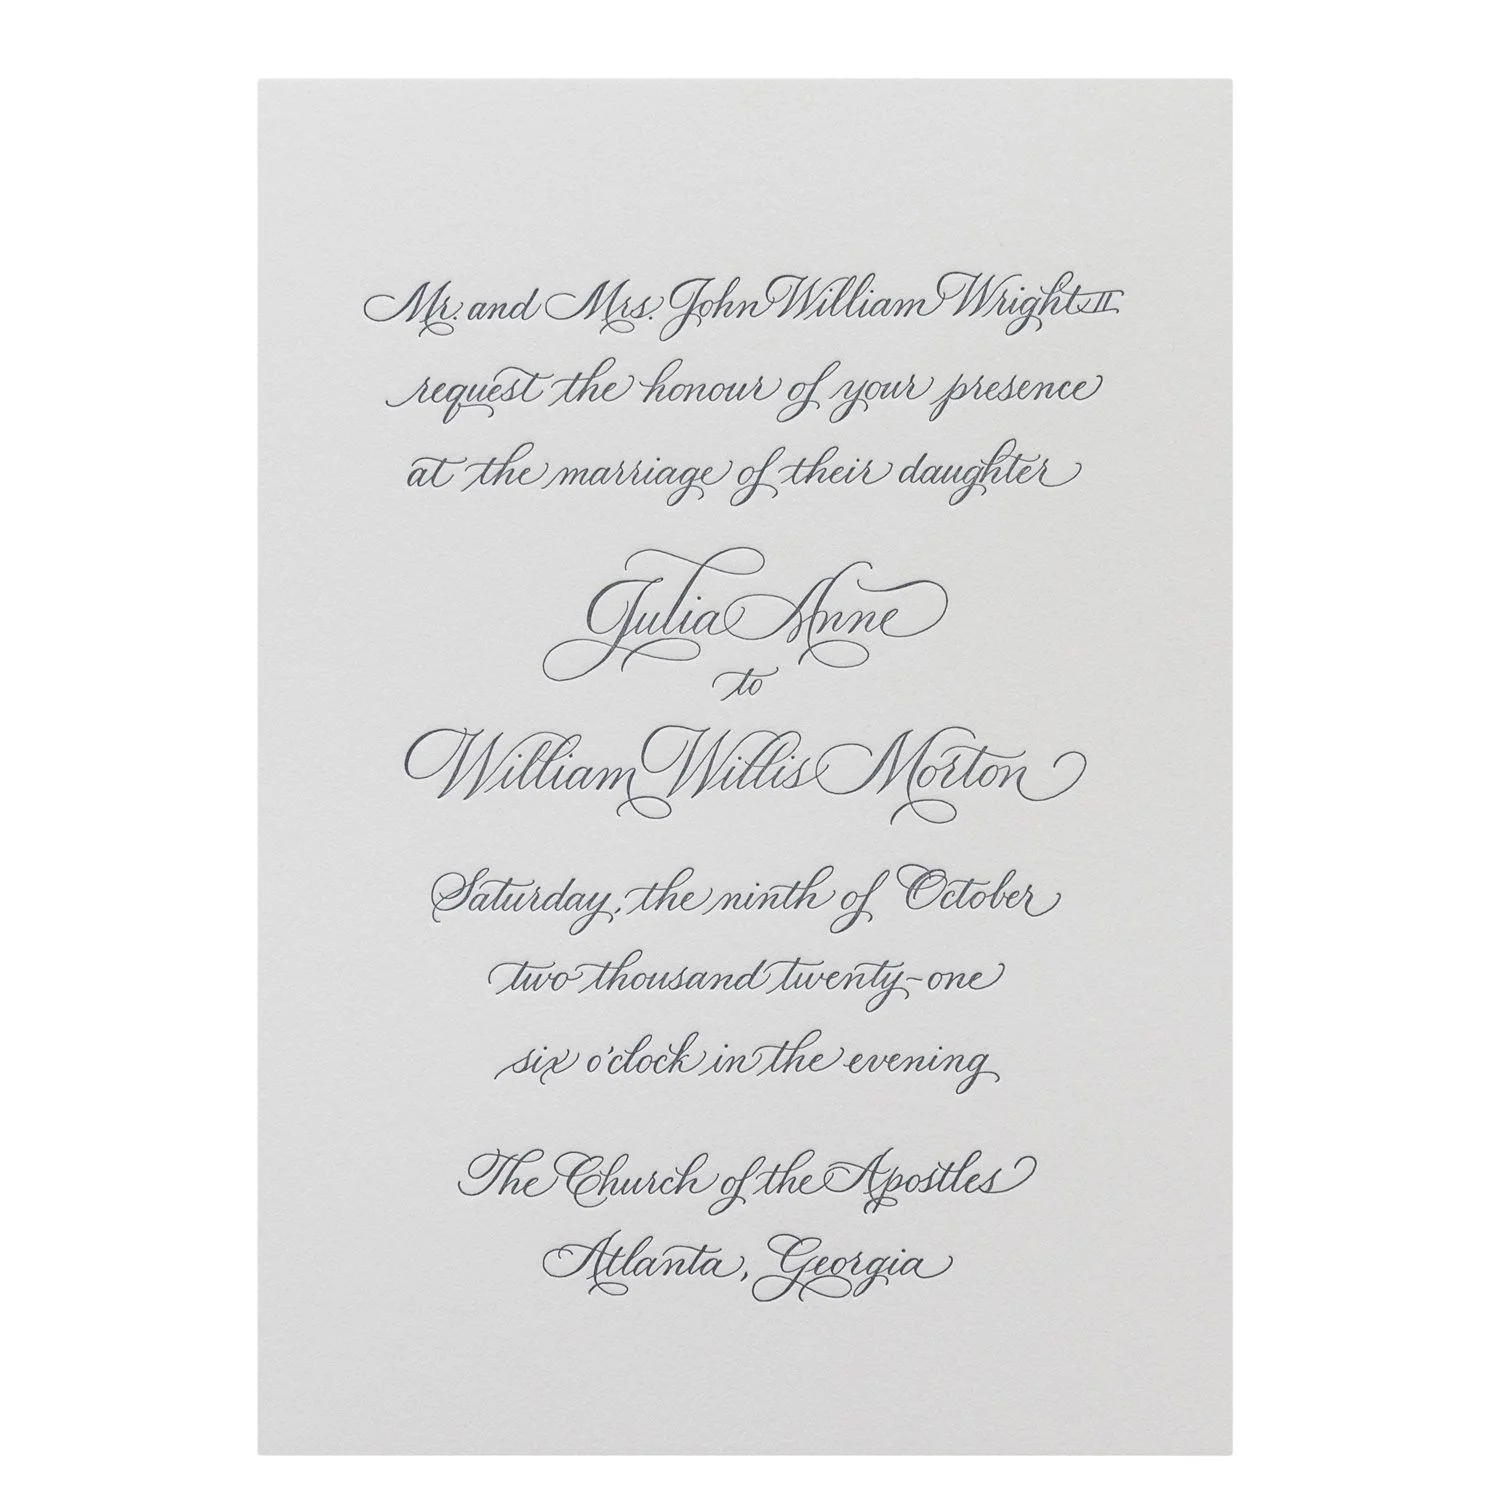 Mr. and Mrs. John William Wright II
request the honour of your presence
at the marriage of their daughter
Julia Anne
to
William Willis Morton
Saturday, the ninth of October
two thousand twenty-one
six o'clock in the evening
The Church of the Apostles
Atlanta, Georgia